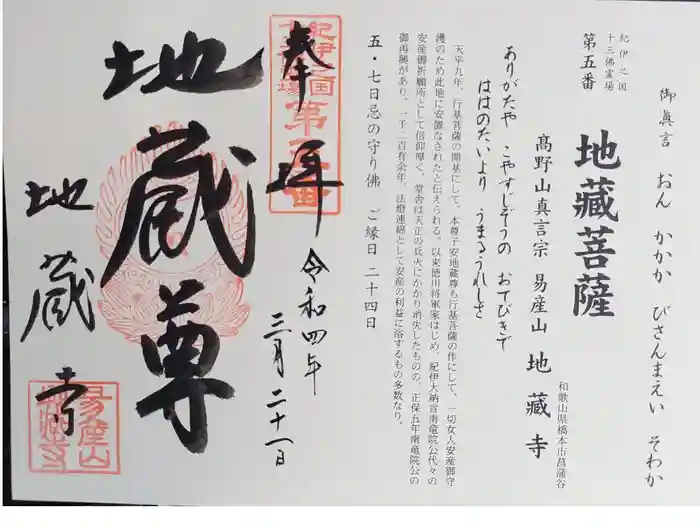 御真言 おん かかか びさんまえい そわか
紀伊之国
十三佛霊場
第五番
地藏菩薩
高野山真言宗 易産山 地藏寺
和歌山県橋本市菖蒲谷
ありがたや こやすじぞうの おてびきで
ははのたいより うまるうれしさ
天平九年、行基菩薩の開基にして、本尊子安地蔵尊も行基菩薩の作にして、一切女人安産御守
護のため此地に安置なされたと伝えられる。以来徳川将軍家はじめ、紀伊大納言南竜院公代々の
安産御祈願所として信仰厚く、堂舎は天正の兵火にかかり消失したものの、正保五年南竜院公の
御再興があり、一千二百有余年、法燈連綿として安産の利益に浴するもの多数なり。
五・七日忌の守り佛 ご縁日 二十四日
奉拝 令和四年
三月二十一日
紀伊之国
十三佛霊場
第五番
地蔵尊
地蔵寺
易産山
地蔵寺